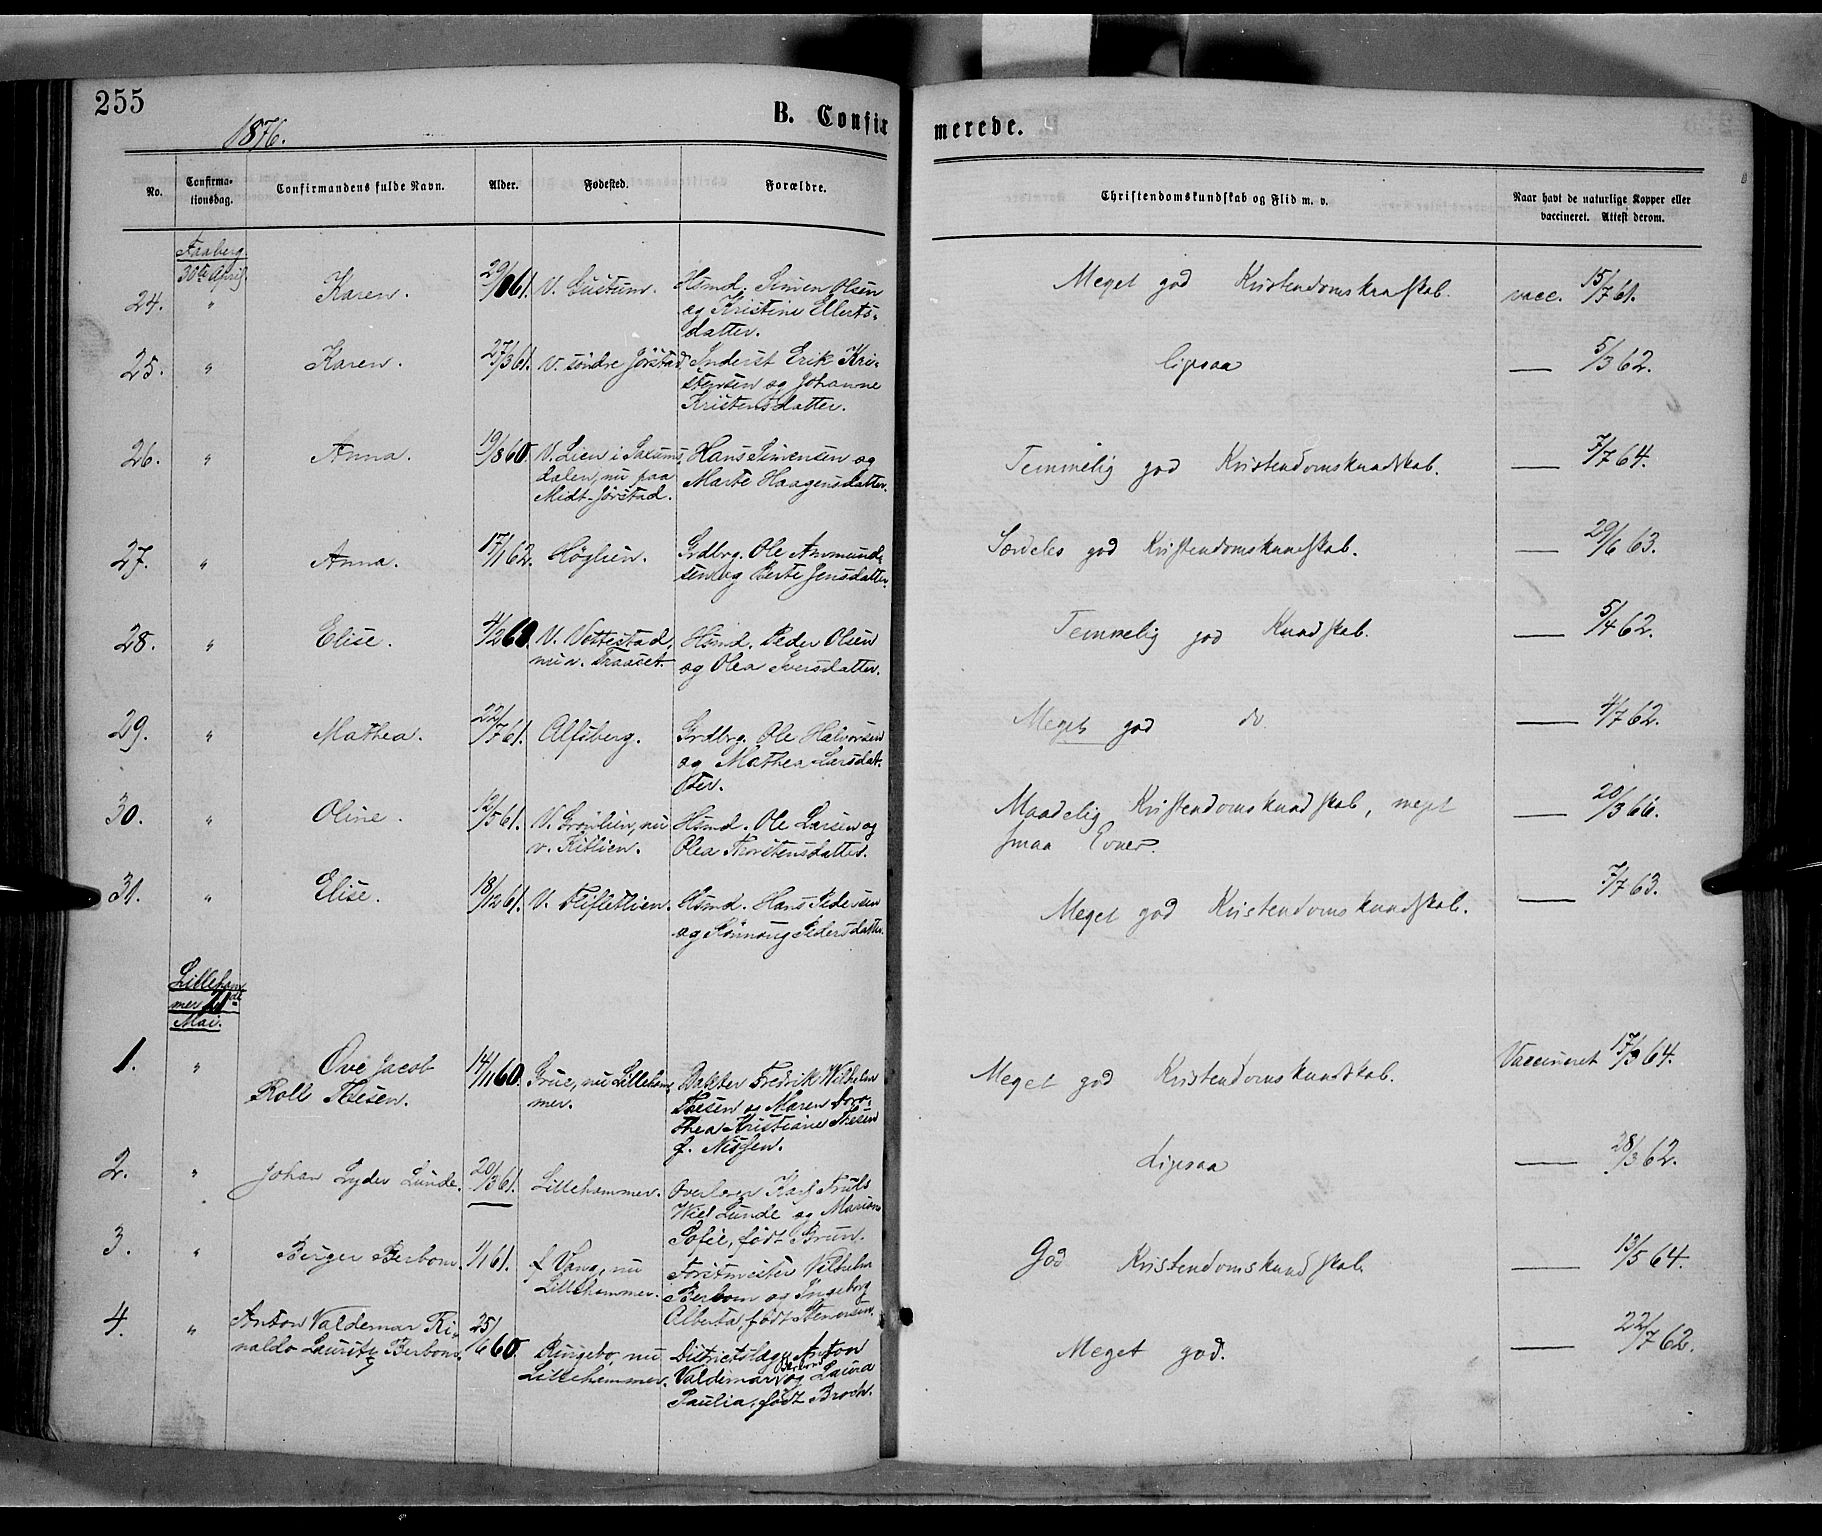 255
1876.
B. Confirmerede.
No.
Confirma-
tionsdag.
Confirmandens fulde Navn.
Alder.
Fødested.
Forældre.
Christendomskundskab og Flid m. v.
Naar havt de naturlige Kopper eller
vaccineret. Attest derom.
Faaberg
30te April.
24. " Karen. V. Hsmd. Simen Olsen Meget god Kristendomskundskab. vacc. 15/7 61.
og Kristine Ellerts-
datter.
25. " Karen. 27/3 61. V. søndre Jørstad. Inderst Erik Kri- Ligesaa — 5/3 62.
stensen og Johanne
Kristensdatter.
26. " Anna. 19/8 60. V. Lien i Saxums Hans Simensen og Temmelig god Kristendomskundskab. — 7/7 64.
dalen, nu paa Marte Haagensdatter.
Midt-Jørstad.
27. " Anna. 17/1 62. Høglien. Grdbrg. Ole Ammund- Særdeles god Kristendomskundskab. — 29/6 63.
sen og Berte Jensdatter.
28. " Elise. V. Vottestad, Hsmd. Peder Olsen Temmelig god Kundskab. — 5/4 62.
nu v. og Olea Iversdatter.
29. " Mathea. 22/7 61. Alfsberg. Grdbrg. Ole Halvorsen Meget god do — 4/7 62.
og Mathea Larsdat-
ter.
30. " Oline. 12/5 61. V. nu Hsmd. Ole Larsen og Maadelig Kristendomskundskab, meget — 20/3 66.
v. Kitlien. Olea Thorstensdatter. smaa Evner.
31. " Elise. 18/12 61. V. Hsmd. Hans Pedersen Meget god Kristendomskundskab. — 7/7 63.
og Rønnoug Pedersdatter.
Lilleham
mer 21de
Mai.
1. " Ove Jacob 14/11 60. Grue, nu Lilleham- Doktor Fredrik Wilhelm Meget god Kristendomskundskab. Vaccineret 17/3 64.
Roll Thesen. mer. Thesen og Maren Doro-
thea Kristiane Thesen
f. Nissen.
2. " Johan Lyder Lunde. 20/3 61. Lillehammer. Overlærer Karl Truls Ligesaa — 28/3 62.
Wiel Lunde og Marion
Sofie, født Bruun.
3. " Birger Berbom. 1/1 61. f. Vang, nu Forstmester Vilhelm God Kristendomskundskab — 13/5 64.
Lillehammer. Berbom og Ingeborg
Alberta, født Stenersen.
4. " Anton Valdemar Ri- 25/6 60. Ringebo, nu Districtslæge Anton Meget god. — 22/7 62.
naldo Lauritz Berbom. Lillehammer. Valdemar Berbom og Laura
Paulia, født Broch.